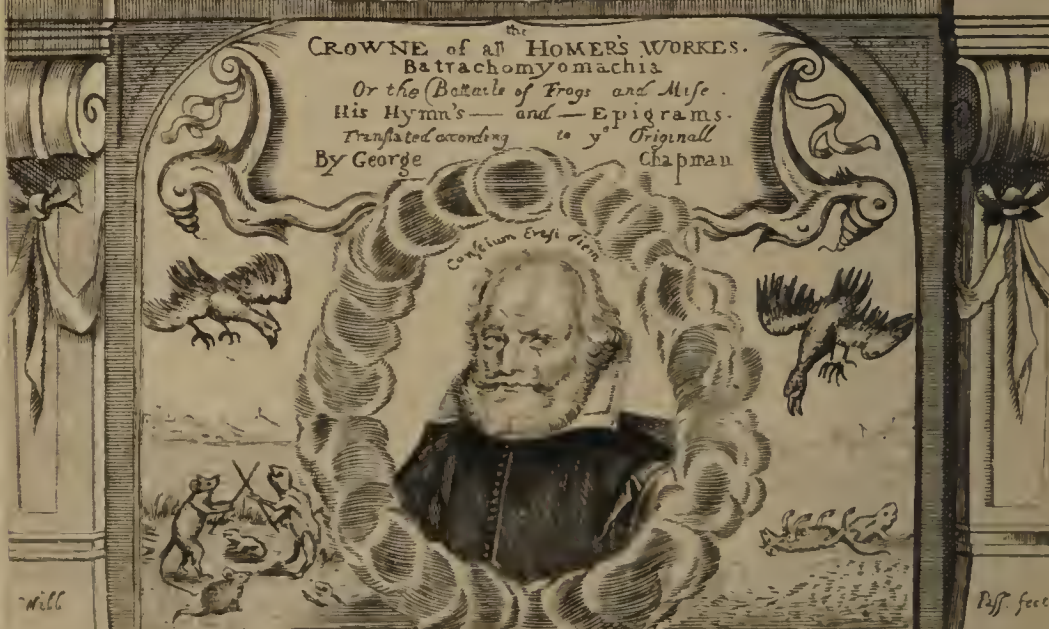 the
CROWNE of all HOMER'S WORKES.
Batrachomyomachia
Or the Battaile of Frogs and Mise.
His Hymn's — and — Epigrams.
Tranſlated according to yᵉ Originall
By George Chapman
Conſcium Evaſi Diem
Will Paſſ. fecit